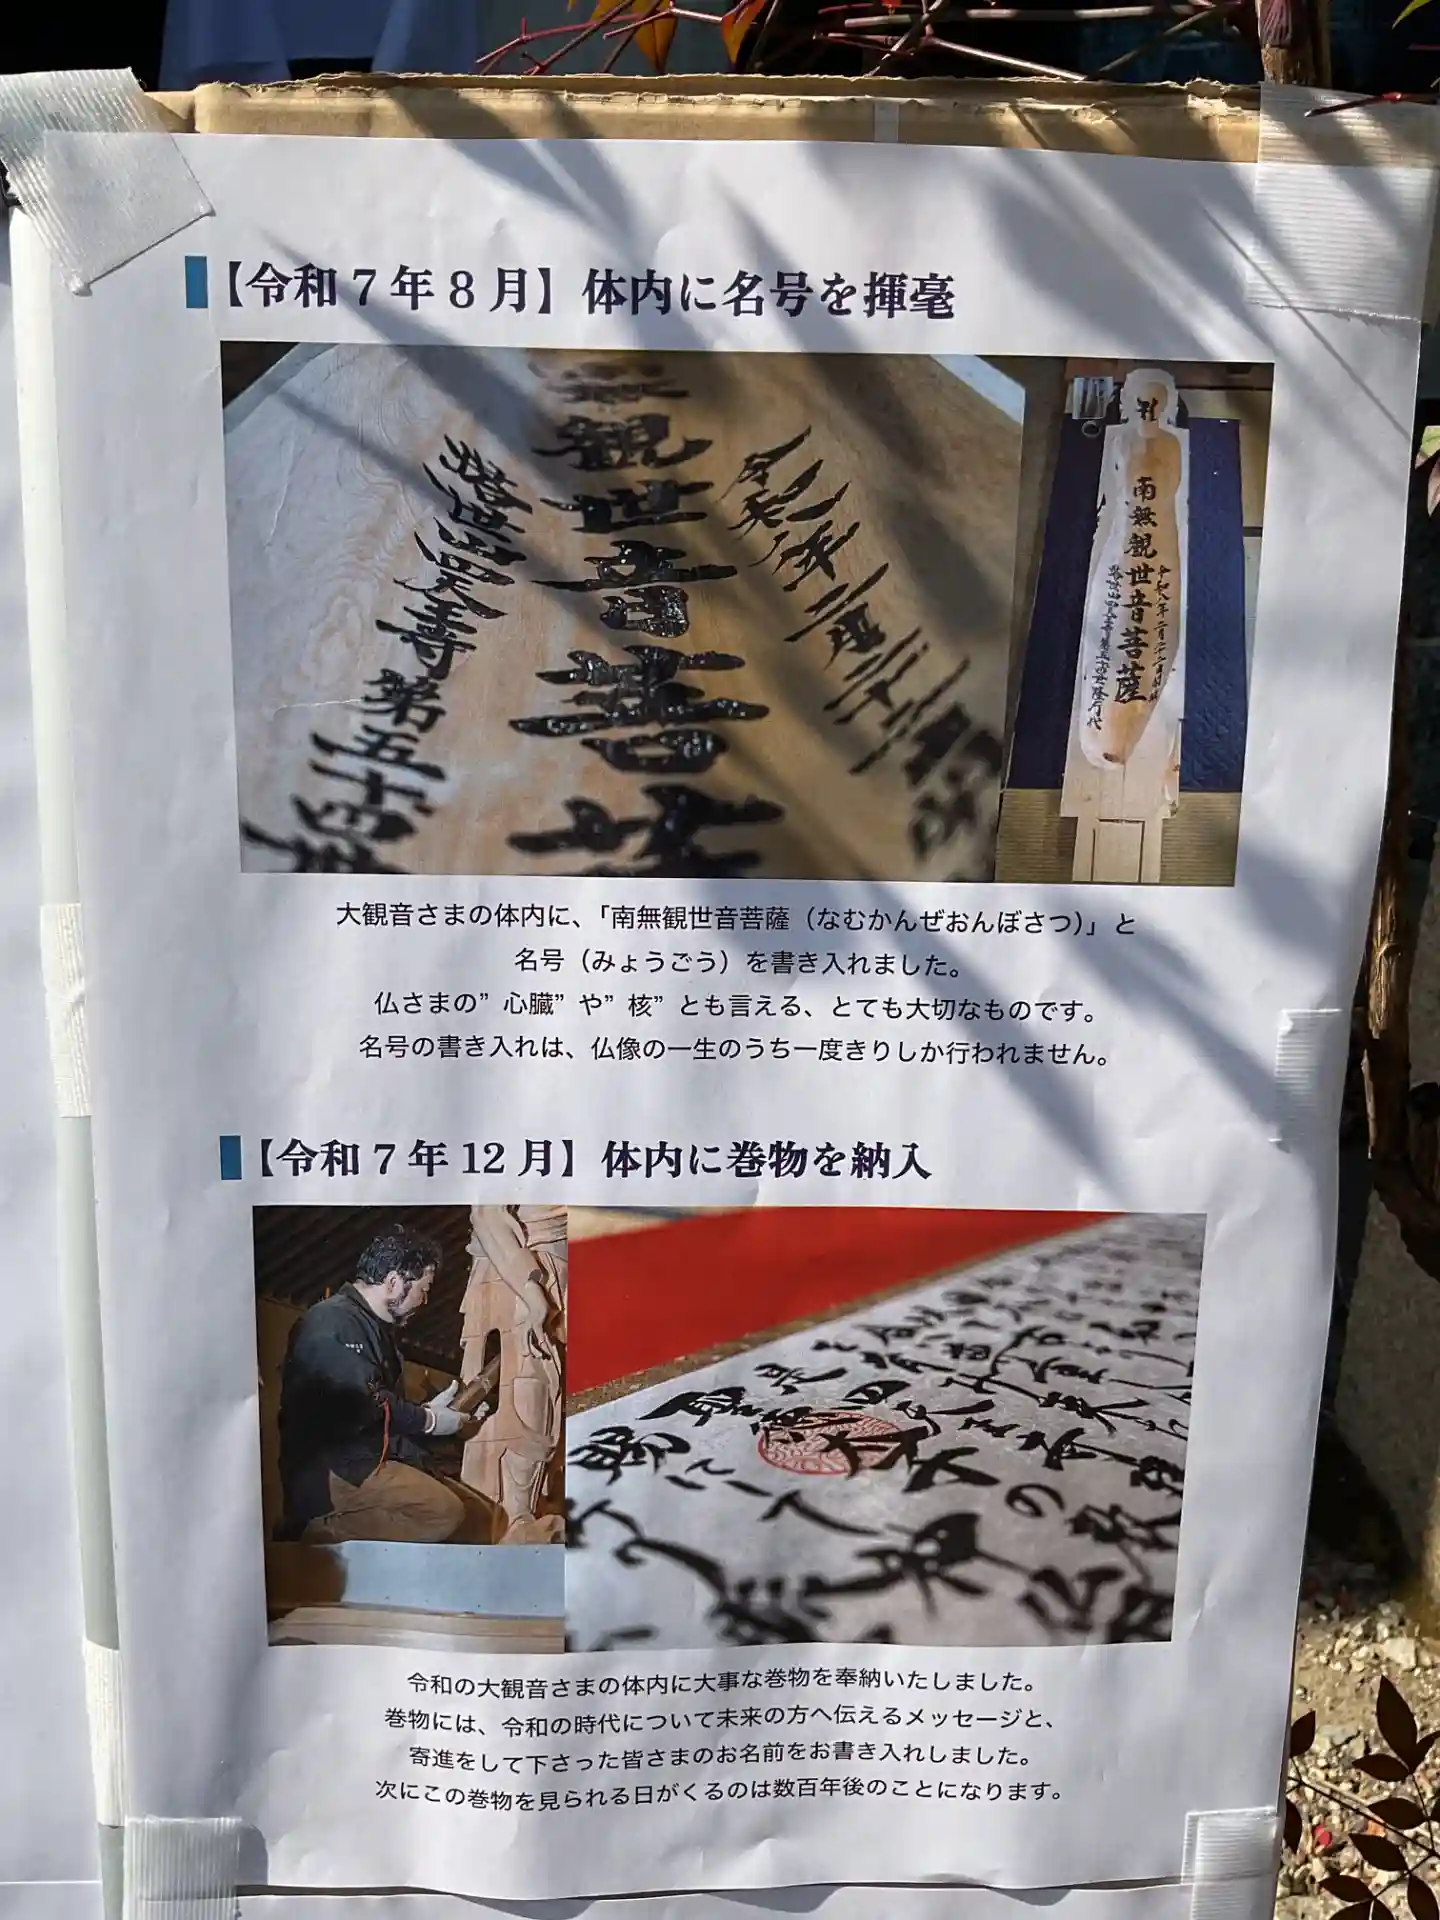 【令和7年8月】体内に名号を揮毫
無
観
世
音
菩
南
無
観
世
音
菩
薩
第五十四世
大観音さまの体内に、「南無観世音菩薩（なむかんぜおんぼさつ）」と
名号（みょうごう）を書き入れました。
仏さまの”心臓”や”核”とも言える、とても大切なものです。
名号の書き入れは、仏像の一生のうち一度きりしか行われません。
【令和7年12月】体内に巻物を納入
令和の大観音さまの体内に大事な巻物を奉納いたしました。
巻物には、令和の時代について未来の方へ伝えるメッセージと、
寄進をして下さった皆さまのお名前をお書き入れしました。
次にこの巻物を見られる日がくるのは数百年後のことになります。